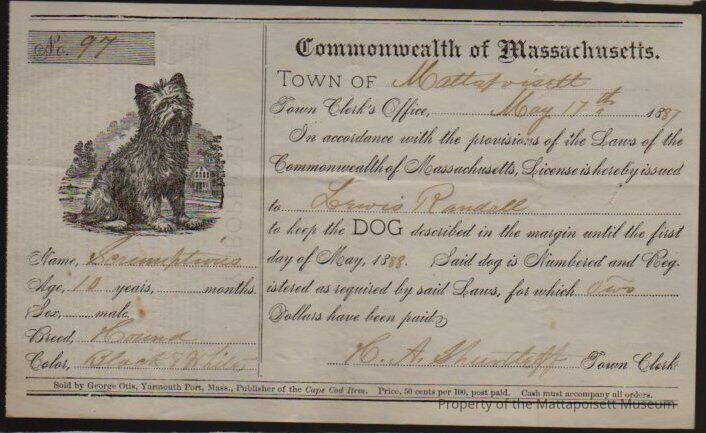 No. 97
Commonwealth of Massachusetts.
TOWN OF Mattapoisett
Town Clerk's Office, May 17th 1887
In accordance with the provisions of the Laws of the
Commonwealth of Massachusetts, License is hereby issued
to Lewis Randall
to keep the DOG described in the margin until the first
day of May, 1888. Said dog is Numbered and Reg-
istered as required by said Laws, for which Two
Dollars have been paid.
H. A. Shurtleff Town Clerk
Name, Scrumptious
Age, 10 years, months.
Sex, male
Breed, Hound
Color, Black & White
Sold by George Otis, Yarmouth Port, Mass., Publisher of the Cape Cod Item. Price, 50 cents per 100, post paid. Cash must accompany all orders.
Property of the Mattapoisett Museum